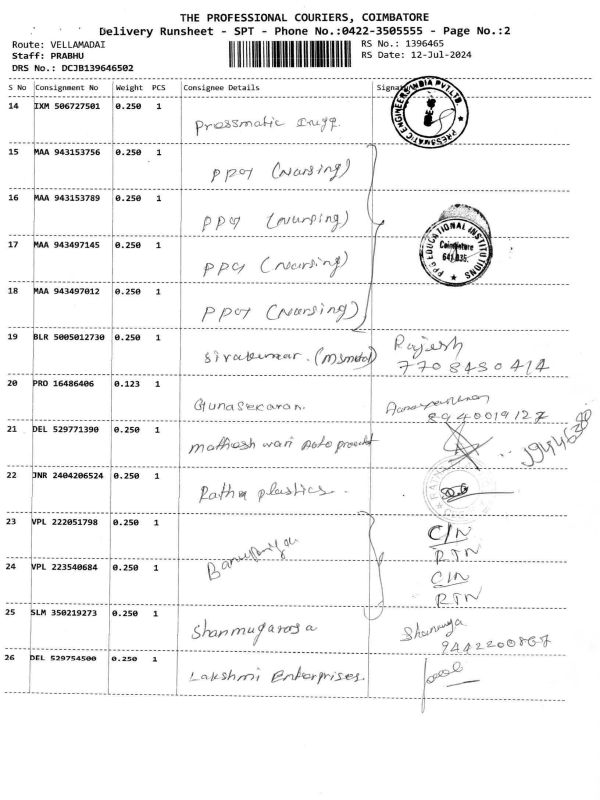 THE PROFESSIONAL COURIERS, COIMBATORE
Delivery Runsheet - SPT - Phone No.:0422-3505555 - Page No.:2
Route: VELLAMADAI
RS No.: 1396465
Staff: PRABHU
RS Date: 12-Jul-2024
DRS No.: DCJB139646502
S No Consignment No Weight PCS Consignee Details Signature
14 IXM 506727501 0.250 1
Pressmatic Engg.
PRESSMATIC ENGINEERS INDIA PVT LTD.
15 MAA 943153756 0.250 1
ppg (Nursing)
16 MAA 943153789 0.250 1
ppg (Nursing)
PPG EDUCATIONAL INSTITUTIONS
Coimbatore
641 035.
17 MAA 943497145 0.250 1
ppg (Nursing)
18 MAA 943497012 0.250 1
ppg (Nursing)
19 BLR 5005012730 0.250 1
Sivakumar. (msmetal) Rajesh
7708450414
20 PRO 16486406 0.123 1
Gunasekaran.
8940019127
21 DEL 529771390 0.250 1
22 JNR 2404206524 0.250 1
Rathna plastics.
23 VPL 222051798 0.250 1
C/N
RTN
24 VPL 223540684 0.250 1
Banupriya
C/N
RTN
25 SLM 350219273 0.250 1
Shanmugaraja Shanmuga
9442200867
26 DEL 529754500 0.250 1
Lakshmi Enterprises.